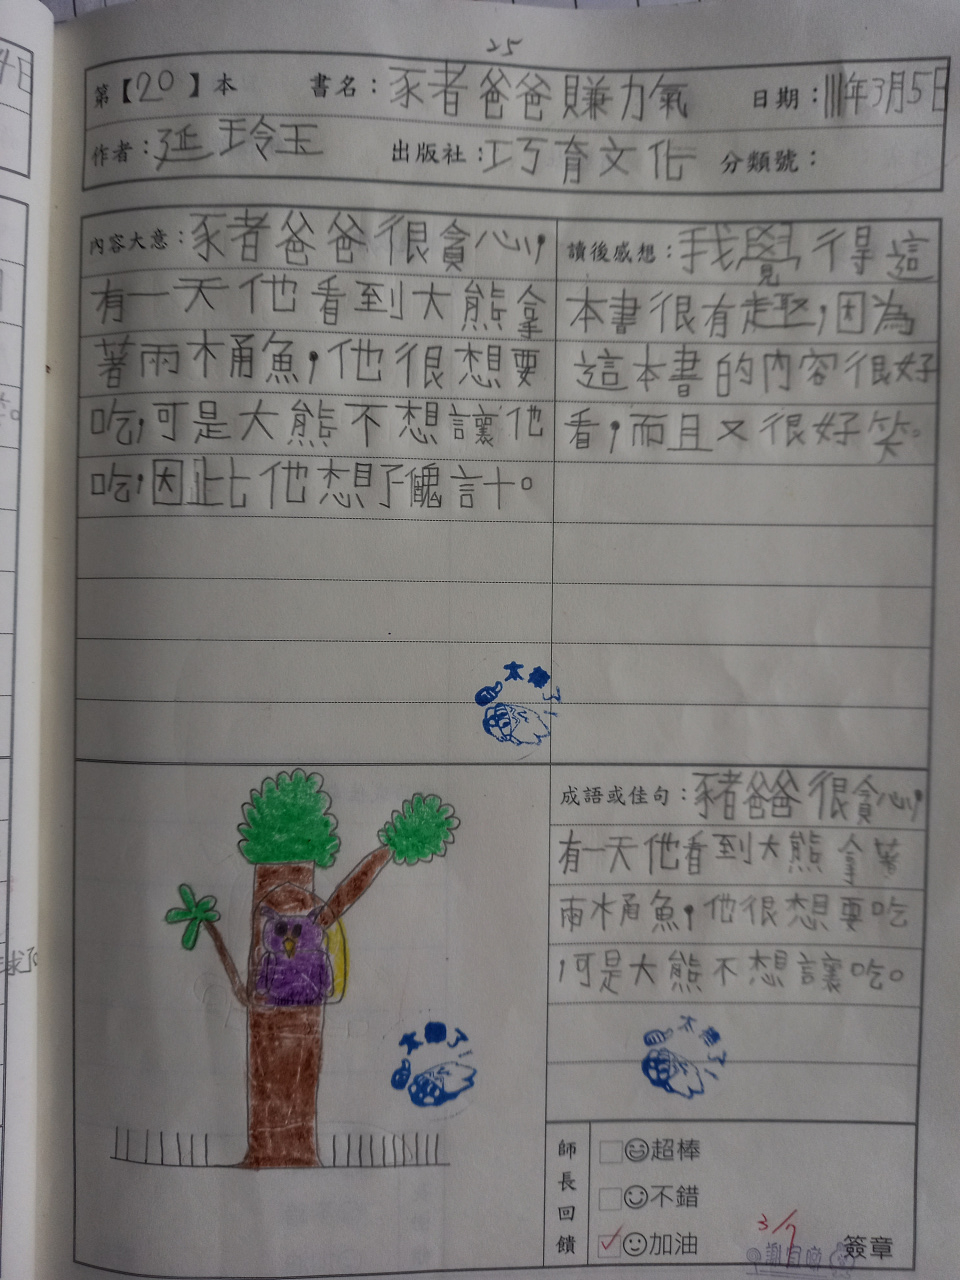 25
第【20】本 書名：豕者爸爸賺力氣 日期：111年3月5日
作者：延玲玉 出版社：巧育文化 分類號：
內容大意：豕者爸爸很貪心，
有一天他看到大熊拿
著兩木桶魚，他很想要
吃，可是大熊不想讓他
吃，因此他想了個醜計。
讀後感想：我覺得這
本書很有趣，因為
這本書的內容很好
看，而且又很好笑。
太棒了！
成語或佳句：豬爸爸很貪心，
有一天他看到大熊拿著
兩木桶魚，他很想要吃
，可是大熊不想讓吃。
太棒了！
太棒了！
師長回饋
超棒
不錯
加油
3/7
簽章